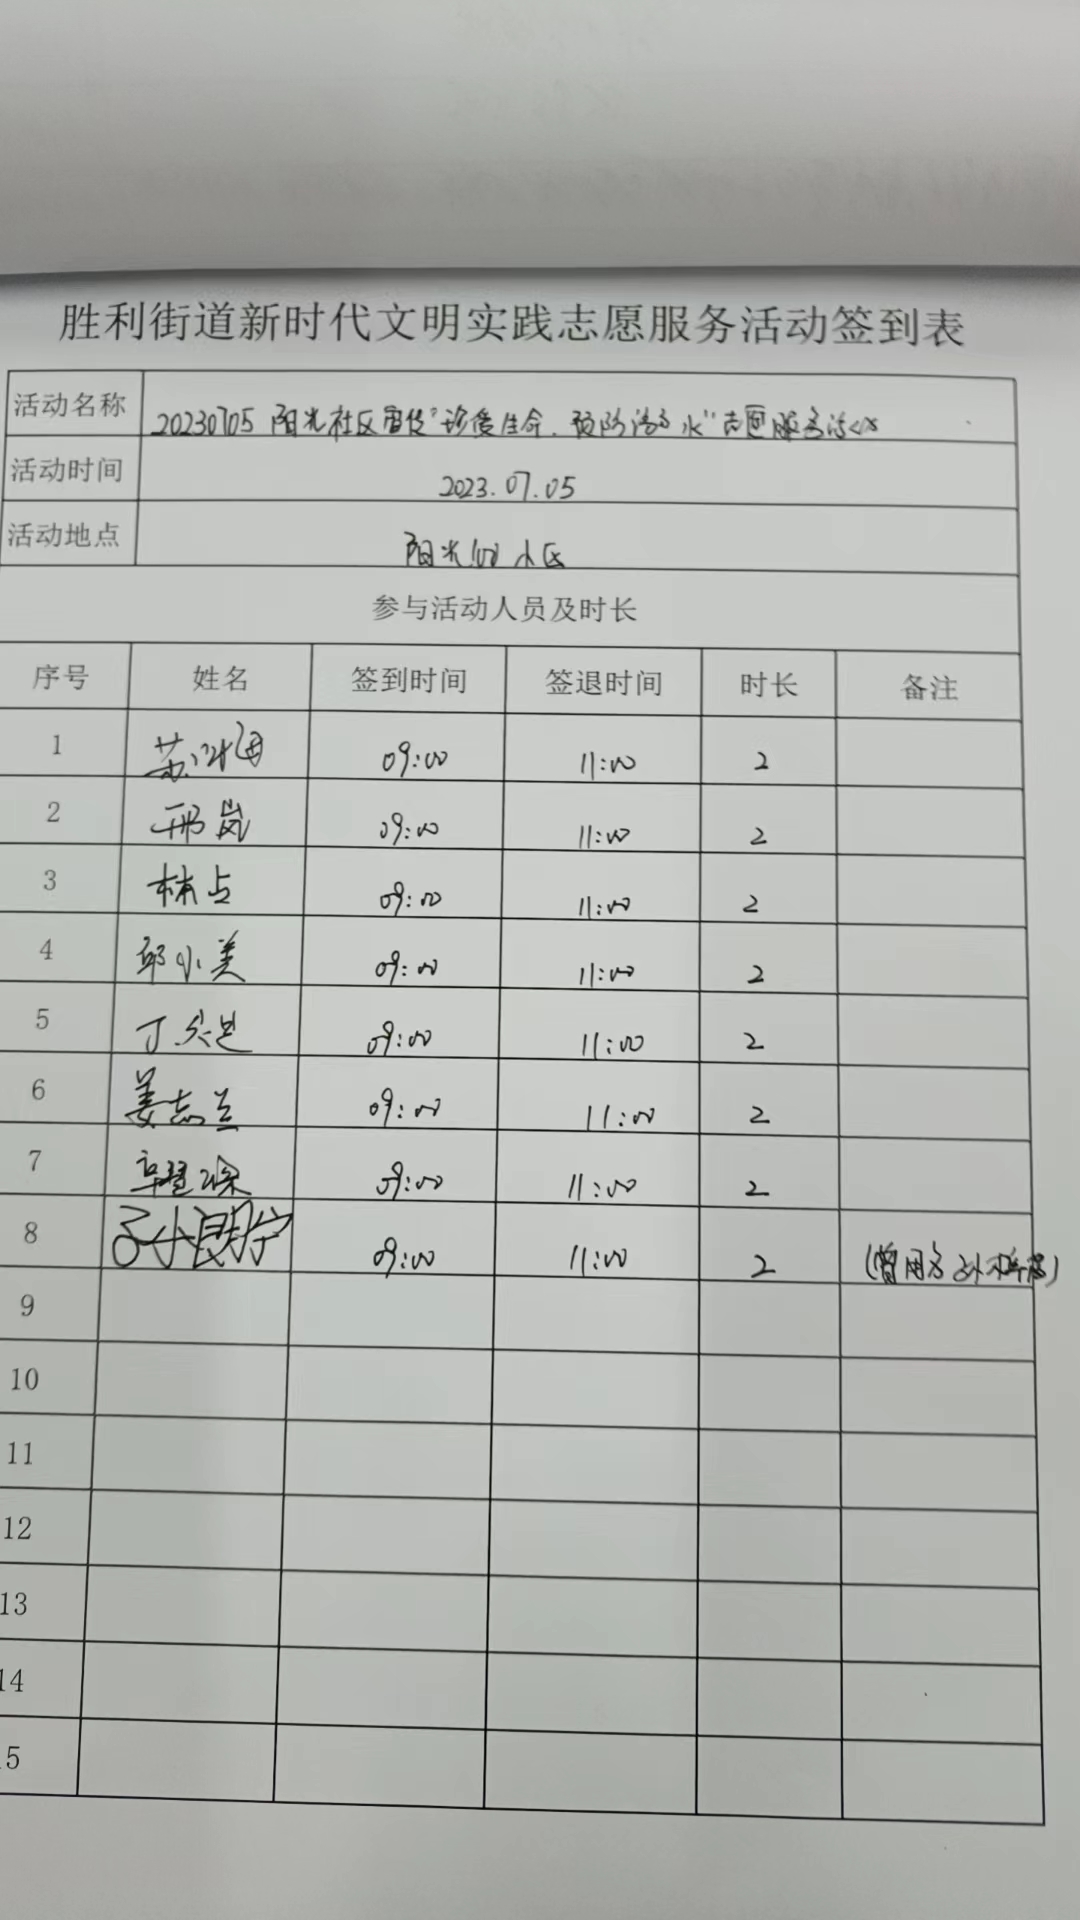 胜利街道新时代文明实践志愿服务活动签到表
活动名称 20230705 阳光社区宣传"珍爱生命、预防溺水"志愿服务活动
活动时间 2023.07.05
活动地点 阳光 小区
参与活动人员及时长
序号 姓名 签到时间 签退时间 时长 备注
1 苏 09:00 11:00 2
2 邢岚 09:00 11:00 2
3 林占 09:00 11:00 2
4 邱小美 09:00 11:00 2
5 丁 09:00 11:00 2
6 姜志兰 09:00 11:00 2
7 09:00 11:00 2
8 孙朗宁 09:00 11:00 2 (曾用名 孙 )
9
10
11
12
13
14
15